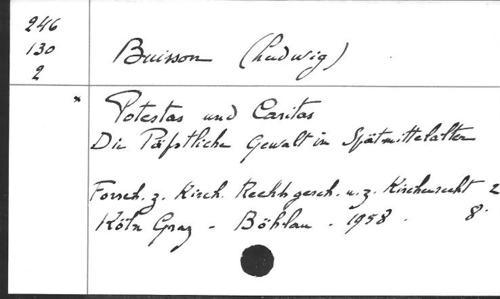 246
130
2
Buisson (Ludwig)
* Potestas und Caritas
Die Päpstliche Gewalt im Spätmittelalter
Forsch. z. Kirch. Rechtsgesch. u. z. Kirchenrecht 2
Köln Graz - Böhlau - 1958. 8°